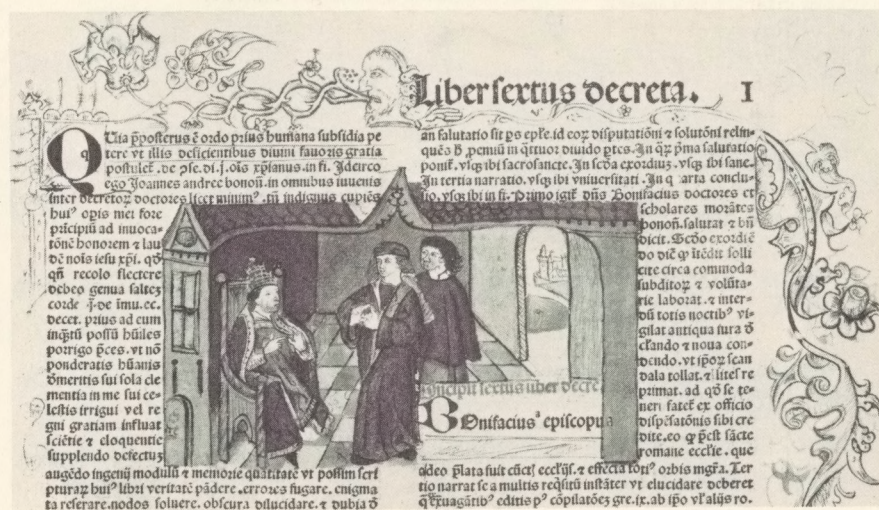 Liber sextus decreta. I
QUia p̄posterus ē ordo prius humana subsidia pe
tere vt illis deficientibus diuini fauoris gratia
postulet᷒. de ꝯse. di. j. oīs xp̄ianus. in fi. Idcirco
ego Joannes andree bonoñ. in omnibus iuuenis
inter decretoꝝ doctores licet minimꝰ. tñ indignus cupiēs
huiꝰ opis mei fore
prīcipiū ad inuoca-
tōnē honorem ⁊ lau
dē noīs iesu xp̄i. qđ
qñ recolo flectere
debeo genua saltez
corde
decet. prius ad eum
inqʒtū possū hūiles
porrigo p̄ces. vt nō
ponderatis hūanis
đmeritis sui sola cle
mentia in me sui ce-
lestis irrigui vel re
gni gratiam influat
sciētie ⁊ eloquentie
supplendo defectuʒ
augēdo ingenij modulū ⁊ memorie quātitatē vt possim scri
pturaꝝ huiꝰ libri veritatē pādere. errores fugare. enigma
ta reserare. nodos soluere. obscura dilucidare. ⁊ dubia đ
an salutatio sit ps ep̄le. id eoꝝ disputatiōni ⁊ solutōni relin-
quēs
ponit᷒. vsqʒ ibi sacrosancte. In scđa exordiuʒ. vsqʒ ibi sane.
In tertia narratio. vsqʒ ibi vniuersitati. In q arta conclu-
sio. vsqʒ ibi in fi. Primo igit᷒ dñs Bonifacius doctores et
scholares morātes
bonoñ. salutat ⁊ bñ
dicit. Scđo exordiē
do diē ꝙ itēdit solli
cite circa commoda
subditoꝝ ⁊ volūta-
rie laborat. ⁊ inter-
dū totis noctibꝰ vi-
gilat antiqua iura đ
clando ⁊ noua con-
dendo. vt ipoꝝ scan
dala tollat. ⁊ lites re
primat. ad qđ se te-
neri fatet᷒ ex officio
dispēsatōnis sibi cre
dite. eo ꝙ p̄est sācte
romane ecclīe. que
Incipit sextus liber decre
BOnifaciusᵃ episcopus
adeo p̄lata fuit cūctꝭ ecclījs. ⁊ effecta totiꝰ orbis mgr̄a. Ter
tio narrat se a multis reqsitū instāter vt elucidare deberet